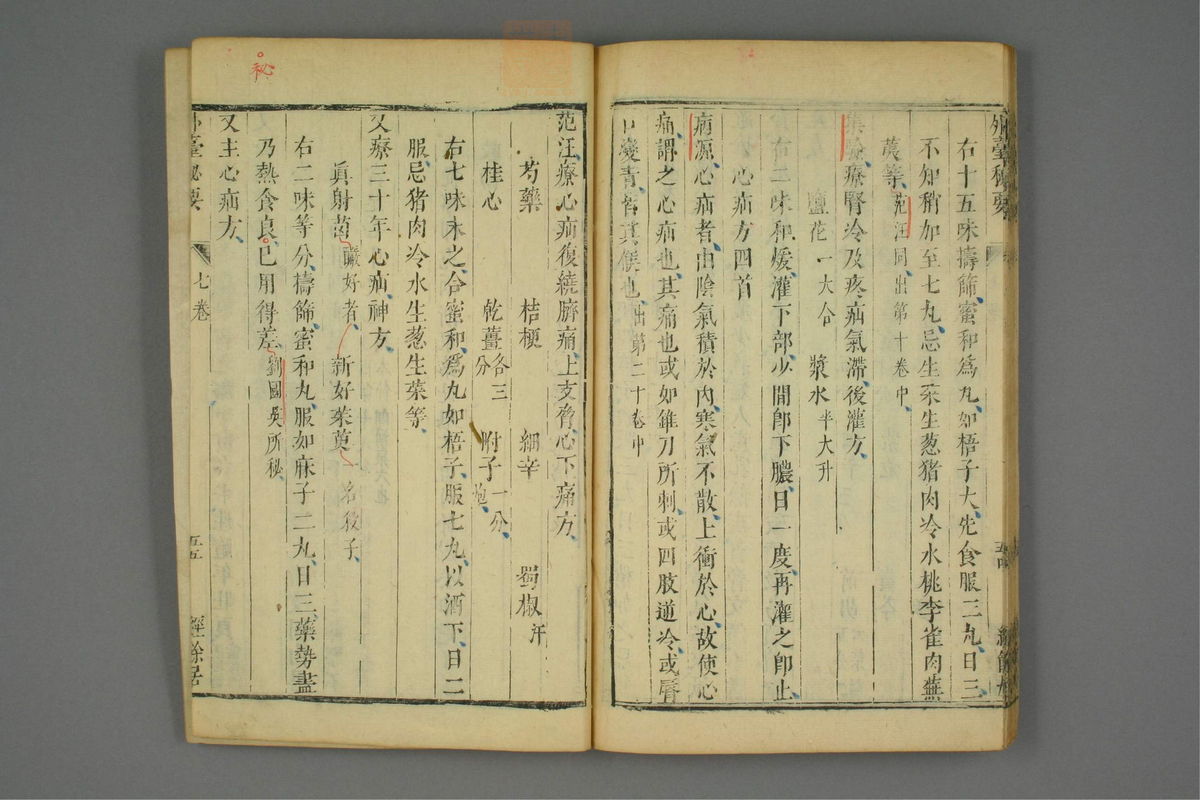 外臺秘要
右十五味擣篩蜜和爲丸如梧子大先食服三丸日三
不知稍加至七丸忌生菜生葱猪肉冷水桃李雀肉蕪
荑等范汪同出第十卷中
集驗療腎冷及疼疝氣滯後灌方
鹽花一大合 漿水半大升
右二味和煖灌下部少間卽下膿日一度再灌之卽止
心疝方四首
病源心疝者由陰氣積於内寒氣不散上衝於心故使心
痛謂之心疝也其痛也或如錐刀所刺或四肢逆冷或唇
口變青皆其候也出第二十卷中
范汪療心疝復繞臍痛上支脅心下痛方
芍藥 桔梗 細辛 蜀椒汗
桂心 乾薑各三分 附子一分炮
右七味末之合蜜和爲丸如梧子服七丸以酒下日二
服忌猪肉冷水生葱生菜等
又療三十年心疝神方
眞射菵臟好者 新好茱萸一名殺子
右二味等分擣篩蜜和丸服如麻子二丸日三藥勢盡
乃熱食良已用得差劉國英所秘
又主心疝方
外臺秘要 七卷 五五 經餘居
秘